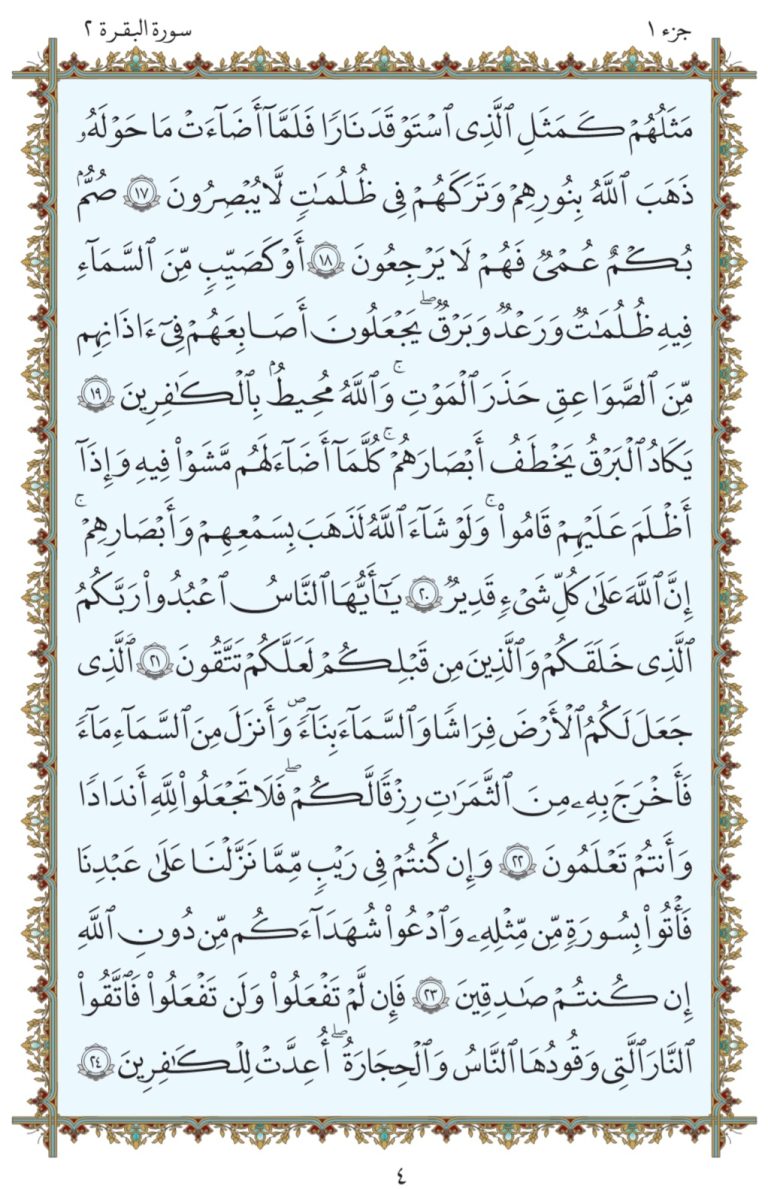 جزء ١
سورة البقرة ٢
مَثَلُهُمْ كَمَثَلِ ٱلَّذِى ٱسْتَوْقَدَ نَارًا فَلَمَّآ أَضَآءَتْ مَا حَوْلَهُۥ
ذَهَبَ ٱللَّهُ بِنُورِهِمْ وَتَرَكَهُمْ فِى ظُلُمَٰتٍ لَّا يُبْصِرُونَ ١٧ صُمٌّۢ
بُكْمٌ عُمْىٌ فَهُمْ لَا يَرْجِعُونَ ١٨ أَوْ كَصَيِّبٍ مِّنَ ٱلسَّمَآءِ
فِيهِ ظُلُمَٰتٌ وَرَعْدٌ وَبَرْقٌ ۖ يَجْعَلُونَ أَصَابِعَهُمْ فِىٓ ءَاذَانِهِم
مِّنَ ٱلصَّوَاعِقِ حَذَرَ ٱلْمَوْتِ ۚ وَٱللَّهُ مُحِيطٌۢ بِٱلْكَٰفِرِينَ ١٩
يَكَادُ ٱلْبَرْقُ يَخْطَفُ أَبْصَارَهُمْ ۚ كُلَّمَآ أَضَآءَ لَهُم مَّشَوْا۟ فِيهِ وَإِذَآ
أَظْلَمَ عَلَيْهِمْ قَامُوا۟ ۚ وَلَوْ شَآءَ ٱللَّهُ لَذَهَبَ بِسَمْعِهِمْ وَأَبْصَارِهِمْ ۚ
إِنَّ ٱللَّهَ عَلَىٰ كُلِّ شَىْءٍ قَدِيرٌ ٢٠ يَٰٓأَيُّهَا ٱلنَّاسُ ٱعْبُدُوا۟ رَبَّكُمُ
ٱلَّذِى خَلَقَكُمْ وَٱلَّذِينَ مِن قَبْلِكُمْ لَعَلَّكُمْ تَتَّقُونَ ٢١ ٱلَّذِى
جَعَلَ لَكُمُ ٱلْأَرْضَ فِرَاشًا وَٱلسَّمَآءَ بِنَآءً ۖ وَأَنزَلَ مِنَ ٱلسَّمَآءِ مَآءً
فَأَخْرَجَ بِهِۦ مِنَ ٱلثَّمَرَٰتِ رِزْقًا لَّكُمْ ۖ فَلَا تَجْعَلُوا۟ لِلَّهِ أَندَادًا
وَأَنتُمْ تَعْلَمُونَ ٢٢ وَإِن كُنتُمْ فِى رَيْبٍ مِّمَّا نَزَّلْنَا عَلَىٰ عَبْدِنَا
فَأْتُوا۟ بِسُورَةٍ مِّن مِّثْلِهِۦ وَٱدْعُوا۟ شُهَدَآءَكُم مِّن دُونِ ٱللَّهِ
إِن كُنتُمْ صَٰدِقِينَ ٢٣ فَإِن لَّمْ تَفْعَلُوا۟ وَلَن تَفْعَلُوا۟ فَٱتَّقُوا۟
ٱلنَّارَ ٱلَّتِى وَقُودُهَا ٱلنَّاسُ وَٱلْحِجَارَةُ ۖ أُعِدَّتْ لِلْكَٰفِرِينَ ٢٤
٤